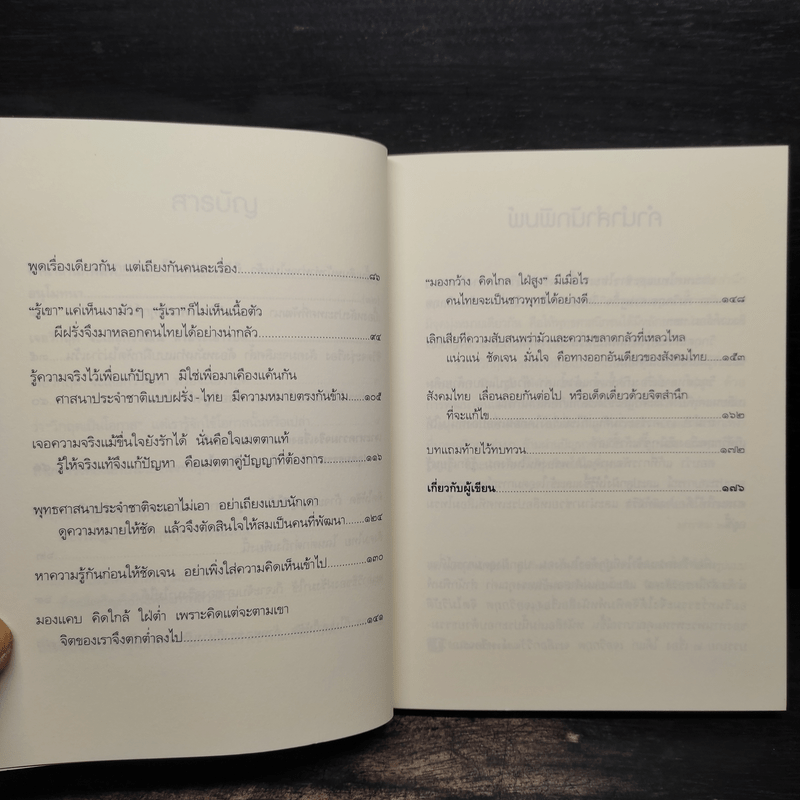 พูดเรื่องเดียวกัน แต่เถียงกันคนละเรื่อง....................................๘๖
"รู้เขา" แค่เห็นเงามัวๆ "รู้เรา" ก็ไม่เห็นเนื้อตัว
ผีฝรั่งจึงมาหลอกคนไทยได้อย่างน่ากลัว..............................๙๔
รู้ความจริงไว้เพื่อแก้ปัญหา มิใช่เพื่อมาเคืองแค้นกัน
ศาสนาประจำชาติแบบฝรั่ง-ไทย มีความหมายตรงกันข้าม....๑๐๕
เจอความจริงแม้ขื่นใจยังรักได้ นั่นคือใจเมตตาแท้
รู้ให้จริงแท้จึงแก้ปัญหา คือเมตตาคู่ปัญญาที่ต้องการ...........๑๑๖
พุทธศาสนาประจำชาติจะเอาไม่เอา อย่าเถียงแบบนักเดา
ดูความหมายให้ชัด แล้วจึงตัดสินใจให้สมเป็นคนที่พัฒนา....๑๒๔
หาความรู้กันก่อนให้ชัดเจน อย่าเพิ่งใส่ความคิดเห็นเข้าไป..........๑๓๐
มองแคบ คิดใกล้ ใฝ่ต่ำ เพราะคิดแต่จะตามเขา
จิตของเราจึงตกต่ำลงไป.................................................๑๔๑
"มองกว้าง คิดไกล ใฝ่สูง" มีเมื่อไร
คนไทยจะเป็นชาวพุทธได้อย่างดี....................................๑๔๘
เลิกเสียทีความสับสนพร่ามัวและความขลาดกลัวที่เหลวไหล
แน่วแน่ ชัดเจน มั่นใจ คือทางออกอันเดียวของสังคมไทย.....๑๕๓
สังคมไทย เลื่อนลอยกันต่อไป หรือเด็ดเดี่ยวด้วยจิตสำนึก
ที่จะแก้ไข.......................................................................๑๖๒
บทแถมท้ายไว้ทบทวน........................................................๑๗๒
เกี่ยวกับผู้เขียน..................................................................๑๗๖